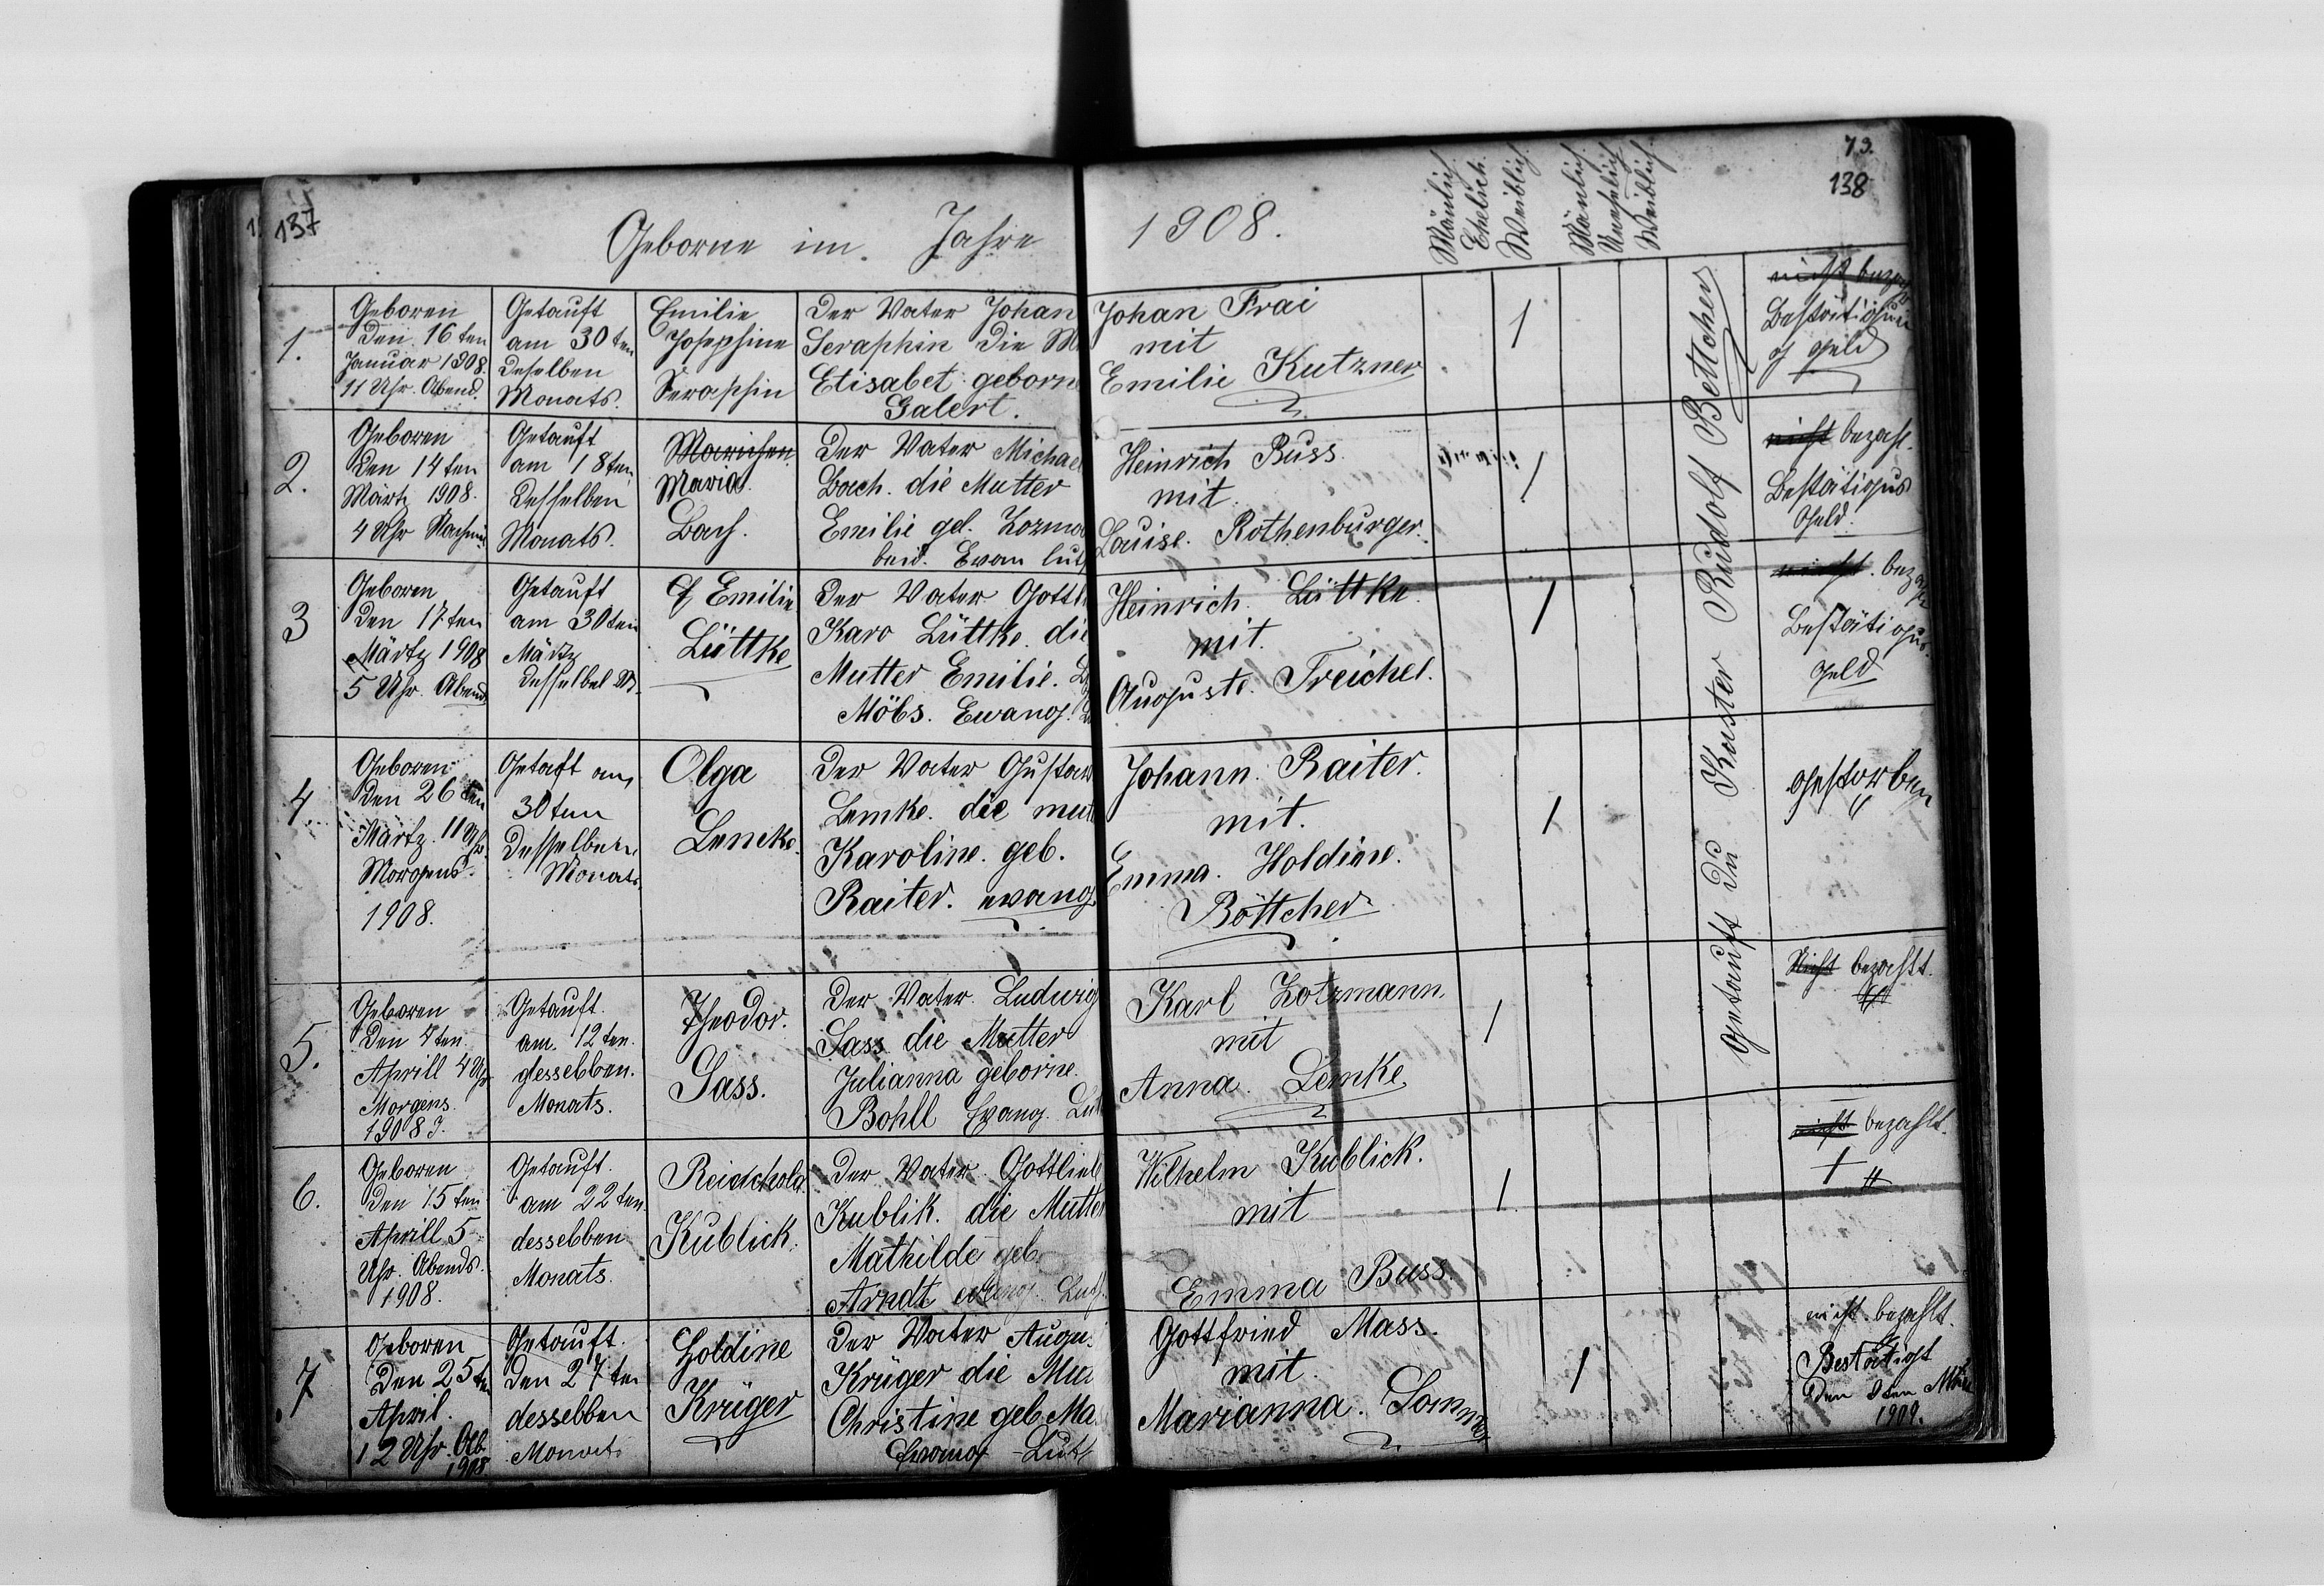 137
73.
138
Geborne im Jahre 1908.
Mänlich
Ehelich.
Weiblich
Mänlich
Unehelich
Weiblich
1.
Geboren
Den 16 ten
Januar 1908.
11 Uhr. Abend.
Getauft
am 30 ten
Deselben
Monats.
Emilie
Josephine
Seraphin
Der Vater Johan
Seraphin Die
Elisabet geborne
Galert.
Johan Frai
mit
Emilie Kutzner
1
nicht
Bestätigun
geld
2.
Geboren
Den 14 ten
Märtz 1908.
4 Uhr Nachmi
Getauft
am 18 ten
Desselben
Monats.
Maria
Bach.
Der Vater Michael
Bach. die Mutter
Emilie geb.
beid. Evan luth
Heinrich Buss
mit
Louise. Rothenburger.
1
nicht bezahl.
Bestätigus
Geld.
3
Geboren
Den 17 ten
Märtz 1908
5 Uhr. Abend
Getauft
am 30 ten
Märtz
Desselbel M.
Emilie
Lüttke
Der Vater Gottl
Karo Lüttke. die
Mutter Emilie.
Möbs. Ewang.
Heinrich. Lüttke
mit.
Auguste. Treichel.
1
nicht. bezahlt
Bestätigus.
geld
4.
Geboren
Den 26 ten
Märtz. 11 Uhr
Morgens.
1908.
Getaft am
30 ten
Desselben
Monats
Olga
Lemke.
Der Vater Gustav
Lemke. die mut
Karoline. geb.
Raiter. evang
Johann. Raiter.
mit.
Emma. Holdine.
Böttcher
1
gestorben
Getauft Du Kuster Rudolf Bettcher
5.
Geboren
Den 4 ten
Aprill 4 Uhr
Morgens.
1908
Getauft.
am. 12 ten.
desselben.
Monats.
Theodor.
Sass.
Der Vater Ludwig
Sass die Mutter
Julianna geborne.
Bohll Evang. Lut
Karl Kotzmann
mit
Anna. Lemke
1
Nicht bezahlt.
6.
Geboren
Den 15 ten
Aprill 5
Uhr. Abends.
1908.
Getauft.
am 22 ten.
dessebben
Monats.
Reichold
Kublick.
Der Vater Gottlieb
Kublik. die Mutter
Mathilde geb.
Arndt evang. Luth.
Wilhelm Kublick.
mit
Emma Buss.
1
nicht bezahlt.
7
Geboren
Den 25 ten
April.
12 Uhr. Ab.
1908
Getauft.
Den 27 ten
dessebben
Monats
Holdine
Krüger
Der Vater Augu
Krüger die Mut
Christine geb Ma
Evang Luth
Gottfried Mass.
mit.
Marianna. Sommer
1
nicht. bezahlt.
Bestätigt
Den 9 ten
1909.